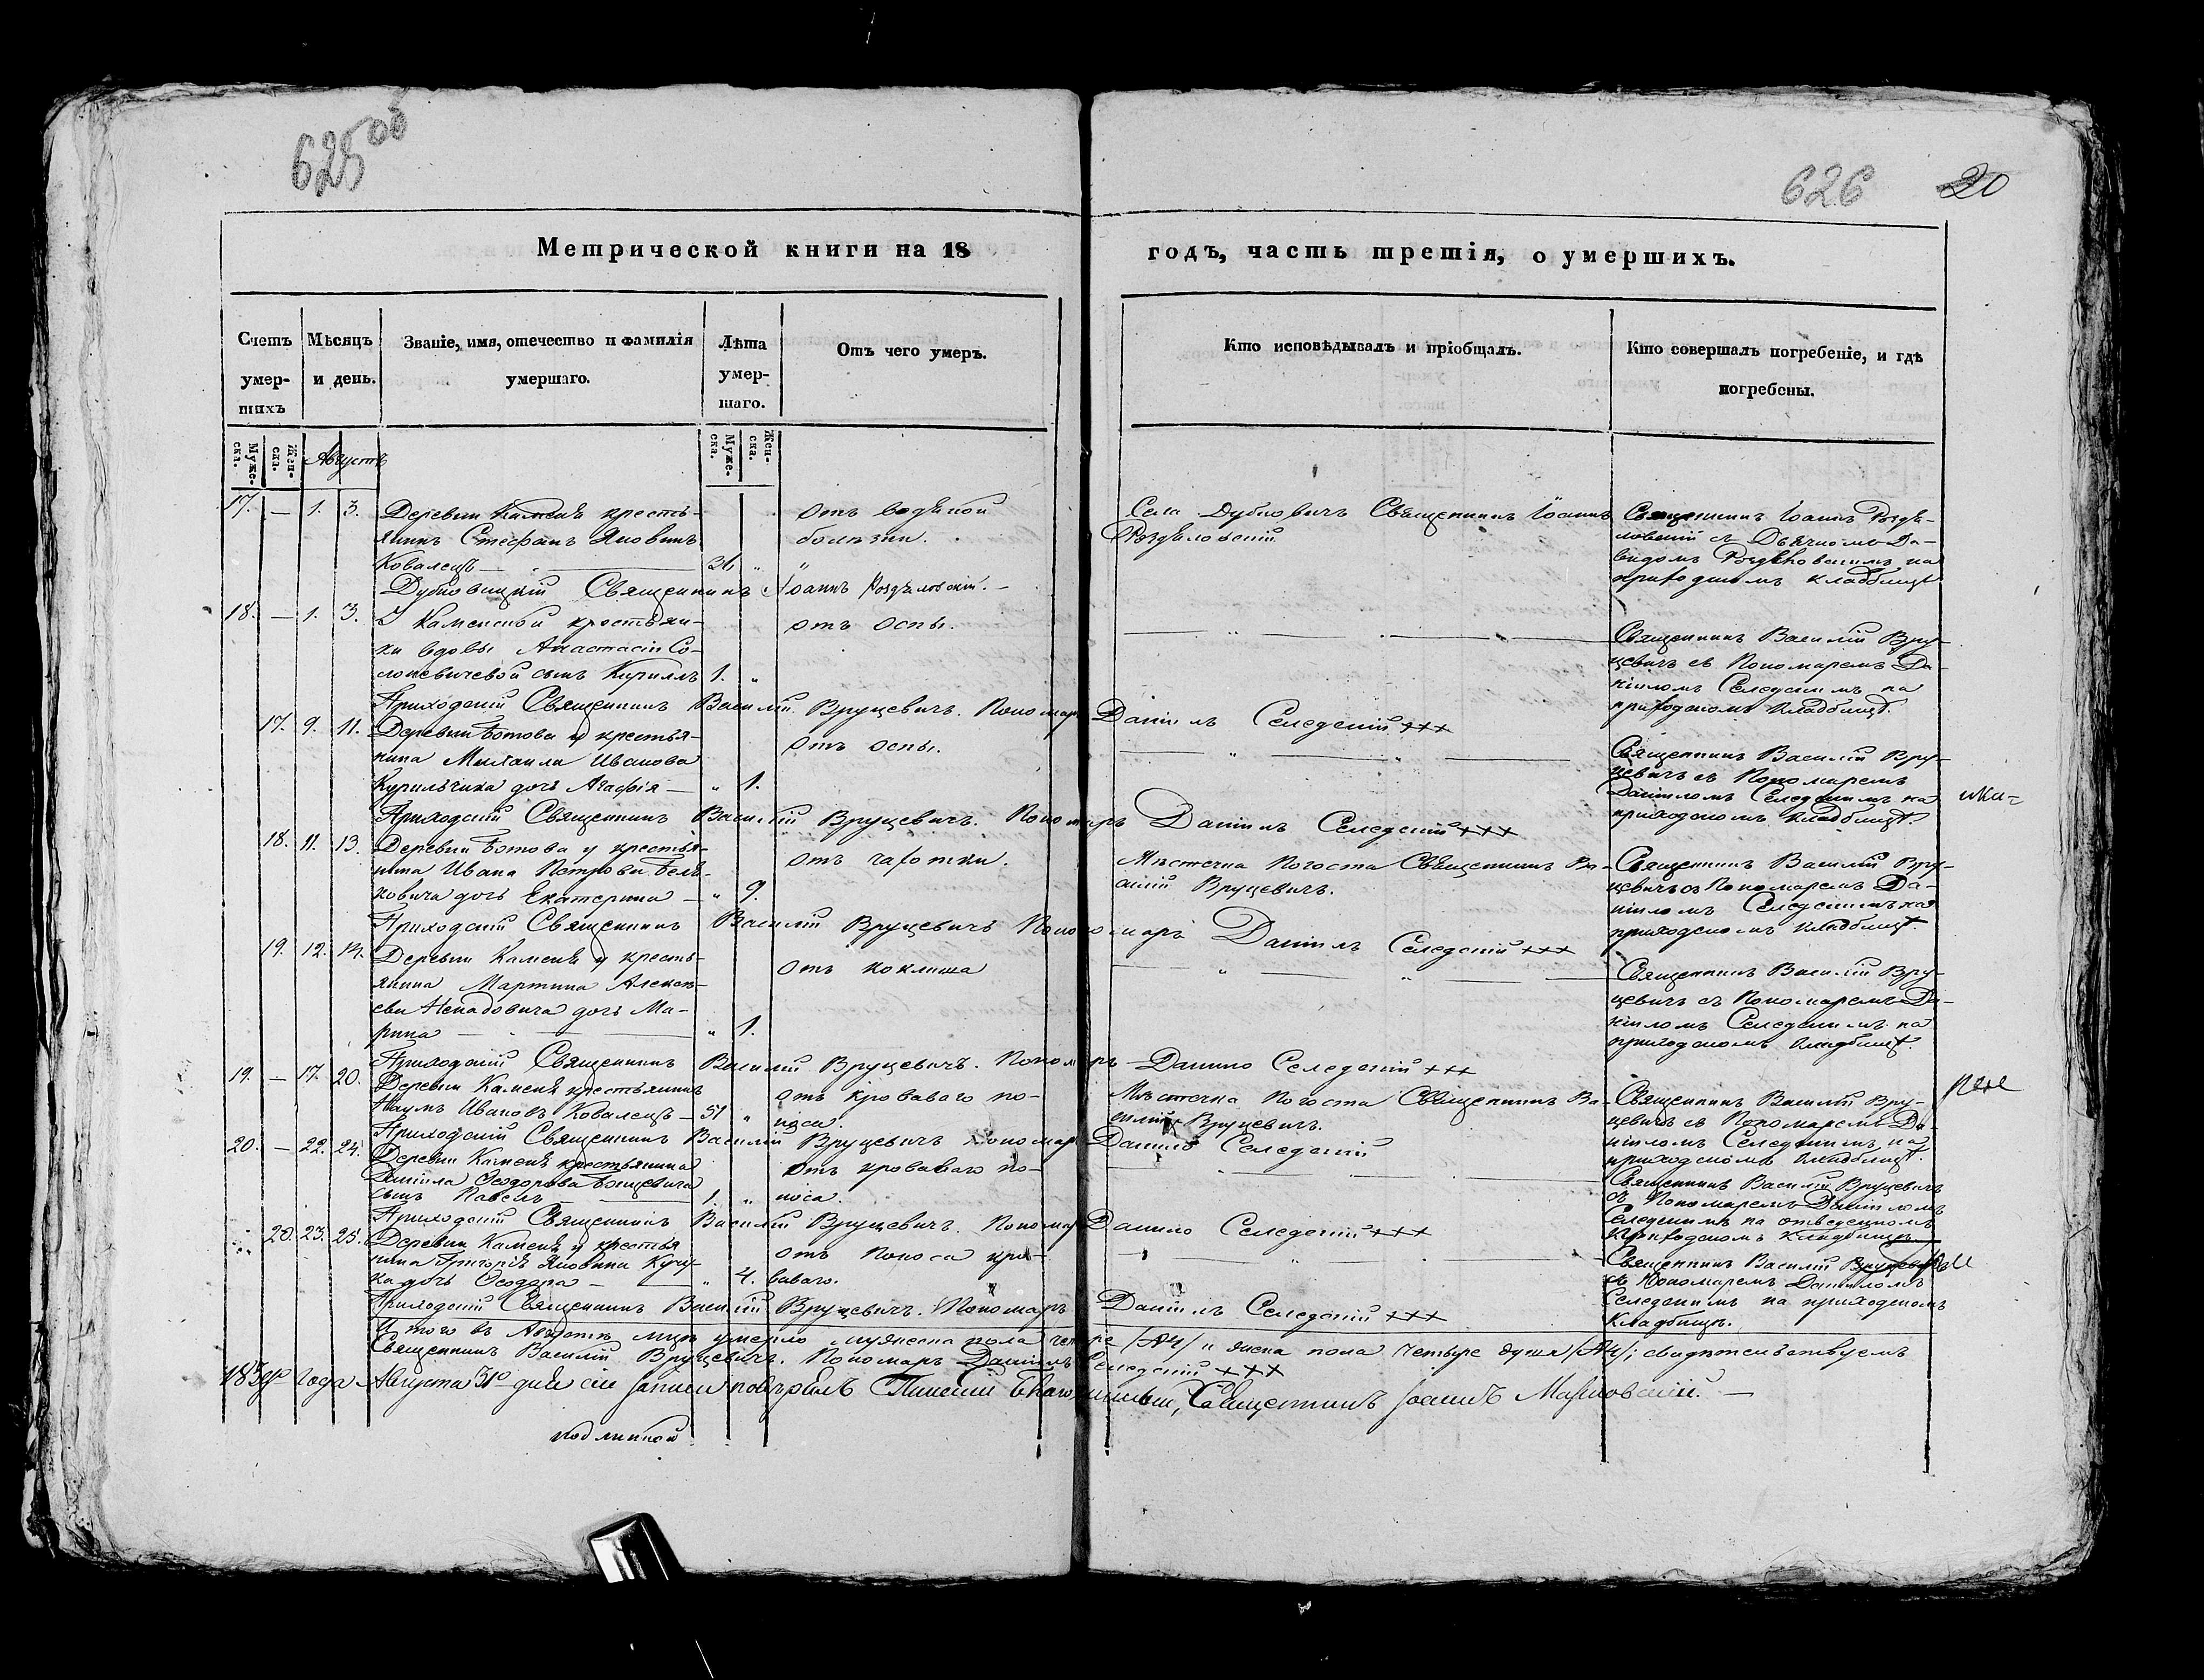 625
626
20
Метрической книги на 18
годъ, часть третія, о умершихъ.
Счетъ умер-
шихъ
Мѣсяцъ
и день.
Званіе, имя, отечество и фамилія
умершаго.
Лѣта
умер-
шаго.
Отъ чего умеръ.
Кто исповѣдывалъ и пріобщалъ.
Кто совершалъ погребеніе, и гдѣ
погребены.
Муже-
ска.
Жен-
ска.
Августъ
Муже-
ска.
Жен-
ска.
17. — 1. 3. Деревни Каменя кресть-
янинъ Стефанъ Яновинъ
Ковалецъ —
отъ водяной
болѣзни.
Села Дубновичъ Священникъ Іоаннъ
Роздяловскій
Священникъ Іоаннъ Роздя-
ловскій съ Дьячкомъ Да-
видомъ на
приходскомъ кладбищѣ
Дубновицкій Священникъ Іоаннъ Роздяловскій. —
18. — 1. 3. У Каменской крестьян-
ки вдовы Анастасіи Со-
лоневичевой сынъ Кириллъ 1. "
отъ оспы.
— " —
Священникъ Василій Вру-
цевичъ съ Пономаремъ Да-
ніиломъ Селедскимъ на
приходскомъ кладбищѣ.
Приходскій Священникъ Василій Вруцевичъ. Пономарь Даніилъ Селедскій +++
17. 9. 11. Деревни Ботова у крестья-
нина Михаила Иванова
Курильчика дочь Агафія — " 1.
отъ оспы.
— " — " —
Священникъ Василій Вру-
цевичъ съ Пономаремъ
Даніиломъ Селедскимъ на
приходскомъ кладбищѣ.
Приходскій Священникъ Василій Вруцевичъ. Пономарь Даніилъ Селедскій +++
18. 11. 13. Деревни Ботова у крестья-
нина Ивана Петрова Бель-
ковича дочь Екатерина — " 9.
отъ чахотки.
Мѣстечка Погоста Священникъ Ва-
силій Вруцевичъ.
Священникъ Василій Вру-
цевичъ съ Пономаремъ Да-
ніиломъ Селедскимъ на
приходскомъ кладбищѣ.
Приходскій Священникъ Василій Вруцевичъ Пономарь Даніилъ Селедскій +++
19. 12. 14. Деревни Каменя у кресть-
янина Мартина Алексѣ-
ева Ненадовича дочь Ма-
рина — " 1.
отъ коклюша
— " — " —
Священникъ Василій Вру-
цевичъ съ Пономаремъ Да-
ніиломъ Селедскимъ на
приходскомъ кладбищѣ.
Приходскій Священникъ Василій Вруцевичъ. Пономарь Данило Селедскій +++
19. — 17. 20. Деревни Каменя крестьянинъ
Наумъ Ивановъ Ковалецъ — 51 "
отъ кроваваго по-
носа.
Мѣстечка Погоста Священникъ Ва-
силій Вруцевичъ.
Священникъ Василій Вру-
цевичъ съ Пономаремъ Да-
ніиломъ Селедскимъ на
приходскомъ кладбищѣ.
Приходскій Священникъ Василій Вруцевичъ Пономарь Данило Селедскій
20. — 22. 24. Деревни Каменя крестьянина
Даніила Ѳеодорова
сынъ Павелъ — 1. "
отъ кроваваго по-
носа.
Священникъ Василій Вруцевичъ
съ Пономаремъ Даніиломъ
Селедскимъ на отведенномъ
приходскомъ кладбищѣ
Приходскій Священникъ Василій Вруцевичъ. Пономарь Данило Селедскій +++
20. 23. 25. Деревни Каменя у крестья
нина Григорія Яковина
дочь Ѳеодора — " 4.
отъ поноса кро-
ваваго.
— " —
Священникъ Василій Вруцевичъ
съ Пономаремъ Даніиломъ
Селедскимъ на приходскомъ
кладбищѣ.
Приходскій Священникъ Василій Вруцевичъ. Пономарь Даніилъ Селедскій +++
Итого въ Августѣ мцѣ умерло мужеска пола четыре и женска пола четыре души; свидѣтельствуемъ
Священникъ Василій Вруцевичъ. Пономарь Даніилъ Селедскій +++
года Августа 31го дня сіи записи повѣрялъ Пинскій Благочинный, Священникъ Іоаннъ